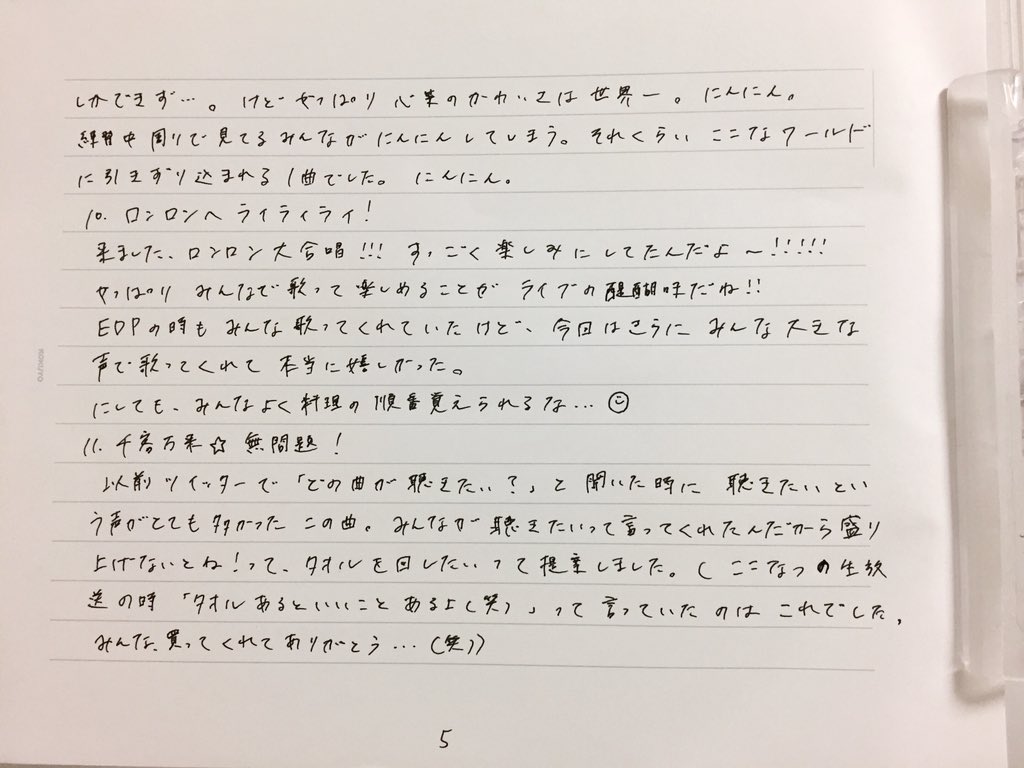 しかできず…。けどやっぱり心菜のかわいさは世界一。にんにん。
練習中周りで見てるみんながにんにんしてしまう。それくらいここなワールド
に引きずり込まれる1曲でした。にんにん。
10. ロンロンへ ライライライ!
来ました、ロンロン大合唱!!! すっごく楽しみにしてたんだよ〜!!!!!
やっぱりみんなで歌って楽しめることがライブの醍醐味だね!!
EDPの時もみんな歌ってくれていたけど、今回はさらにみんな大きな
声で歌ってくれて本当に嬉しかった。
にしても、みんなよく料理の順番覚えられるな…☺
11. 千客万来☆無問題!
以前ツイッターで「どの曲が聴きたい?」と聞いた時に聴きたいとい
う声がとても多かったこの曲。みんなが聴きたいって言ってくれたんだから盛り
上げないとね!って、タオルを回したいって提案しました。(ここなつの生放
送の時「タオルあるといいことあるよ(笑)」って言っていたのはこれでした、
みんな、買ってくれてありがとう…(笑))
5
KOKUYO